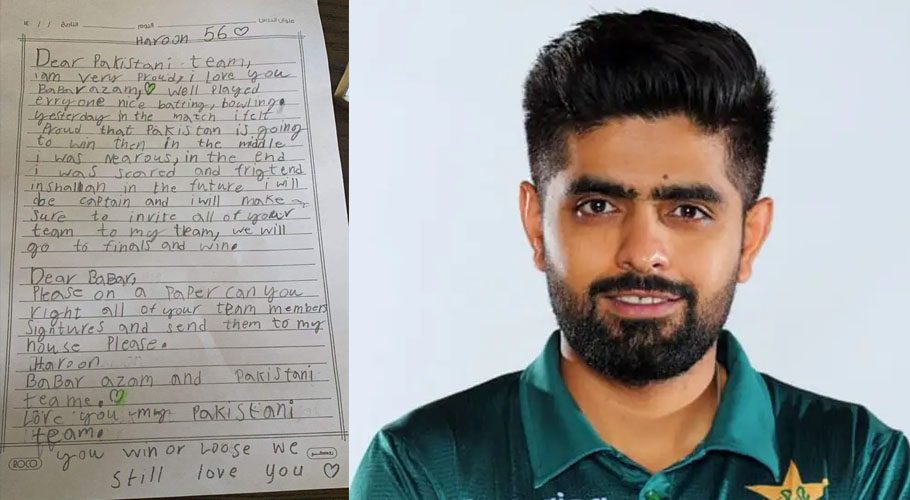 عنوان الدرس
اليوم
التاريخ / / ١٤
Haroon 56
Dear Pakistani team,
i am very proud, i love you
BaBar azam, well played
erryone nice batting, bowling.
yesterday in the match i felt
Proud that Pakistan is going
to win then in the middle
i was nearous, in the end
i was scared and frigtend
inshallah in the future i will
be captain and i will make
sure to invite all of your
team to my team, we will
go to finals and win.
Dear BaBar,
Please on a PaPer can you
right all of your team members
signtures and send them to my
house Please.
Haroon
BaBar azam and Pakistani
teame.
Love you my Pakistani
team.
you win or Loose we
still love you
ROCO